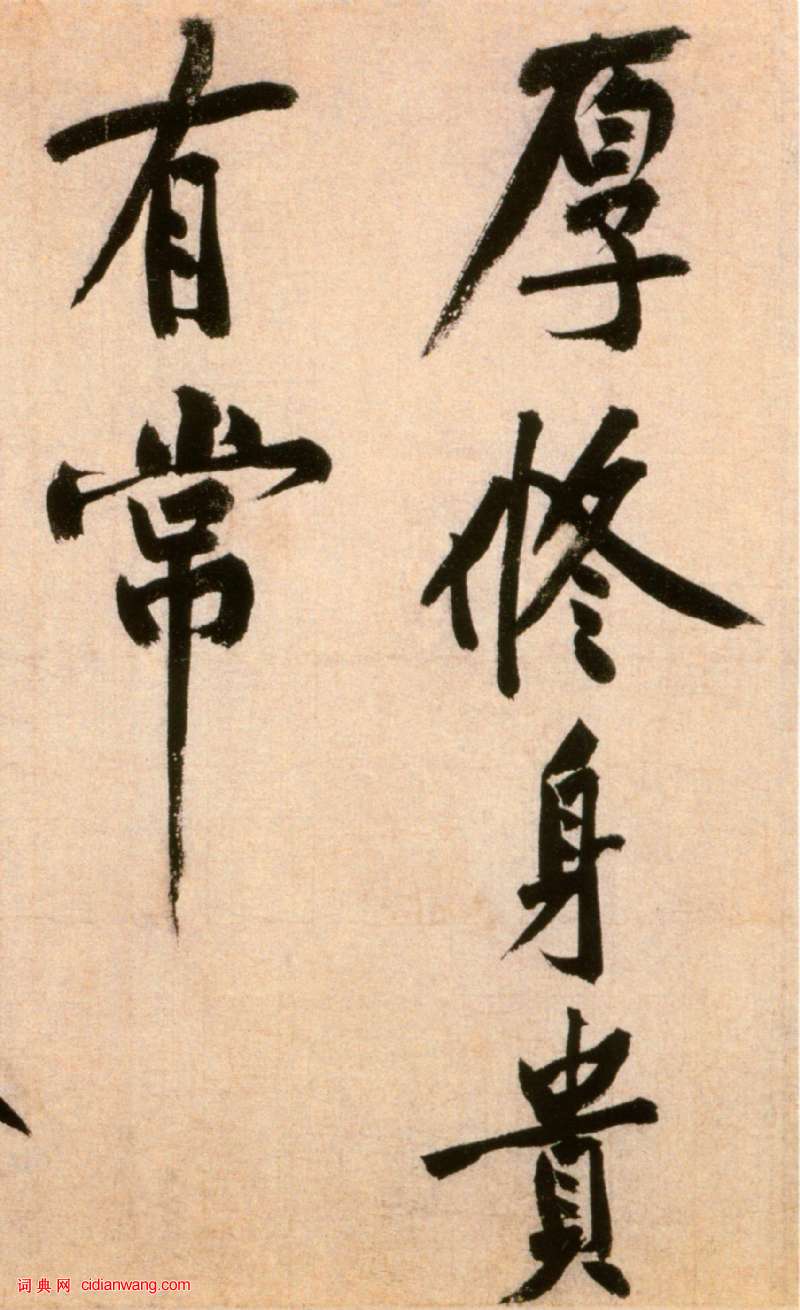 厚修身貴
有常
词典网 cidianwang.com